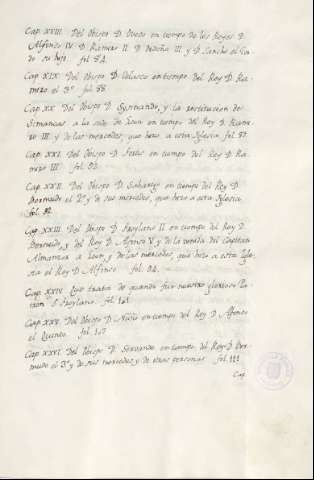 Cap. XVIII. Del Obispo D. Oveco en tiempo de los Reyes D.
Alfonso IV D. Ramiro II D. Ordoño III y D. Sancho el Gor-
do su hijo. fol. 84.
Cap. XIX. Del Obispo D. Velasco en tiempo del Rey D. Ra-
miro el 3º. fol. 88.
Cap. XX. Del Obispo D. Sysinando, y la restitucion de
Simancas a la sede de Leon en tiempo del Rey D. Rami-
ro III. y de las mercedes, que hizo a esta Iglesia fol. 89.
Cap. XXI. Del Obispo D. en tiempo del Rey D. Ra-
miro III. fol. 92.
Cap. XXII. Del Obispo D. Sabarigo en tiempo del Rey D.
Bermudo el 2º. y de sus mercedes, que hizo a esta Iglesia
fol. 92.
Cap. XXIII. Del Obispo D. Froylano II en tiempo del Rey D.
Bermudo, y del Rey D. Alfonso V y de la venida del Capitan
Almanzor a Leon, y de las mercedes, que hizo a esta Igle-
sia el Rey D. Alfonso. fol. 94.
Cap. XXIV. Que trata de quando fue nuestro glorioso Pa-
tron S. Froylano. fol. 101.
Cap. XXV. Del Obispo D. Nuño en tiempo del Rey D. Alfonso
el Quinto. fol. 107
Cap. XXVI. Del Obispo D. Servando en tiempo del Rey D. Ber-
mudo el 3º. y de sus mercedes y de otras personas. fol. 111
Cap.